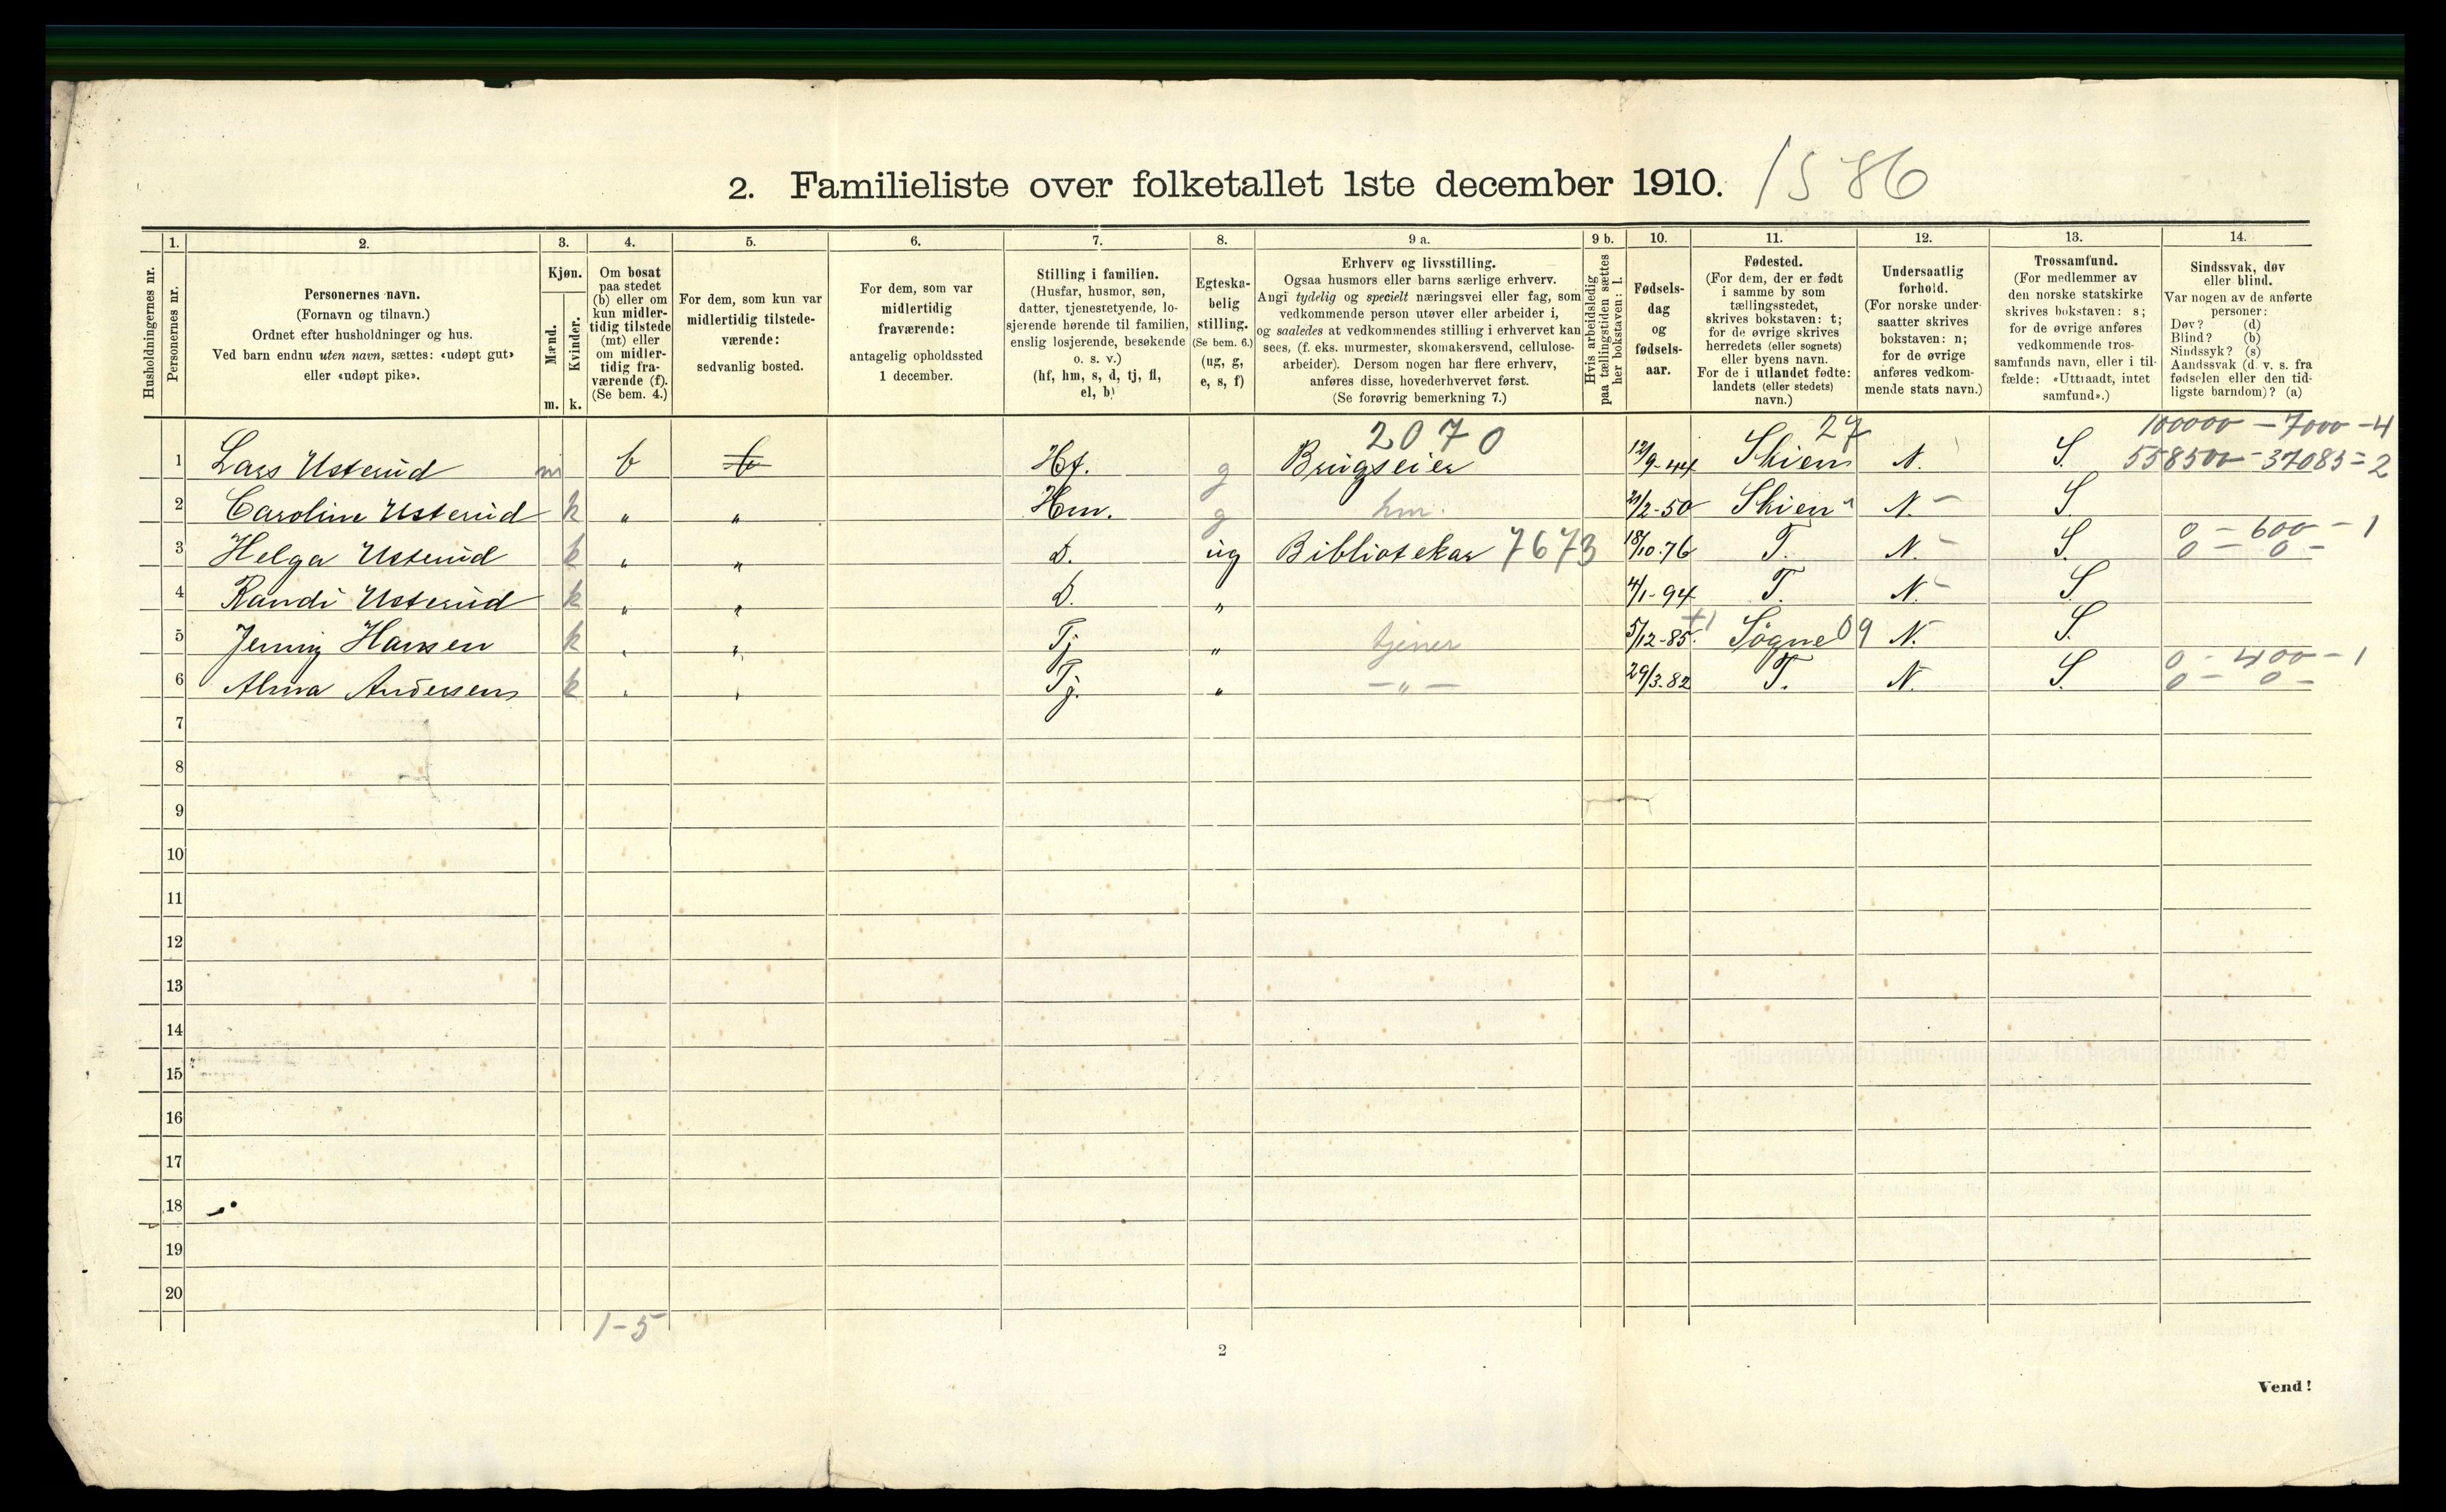 2. Familieliste over folketallet 1ste december 1910. 1586
Husholdningernes nr.
1.
Personernes nr.
2.
Personernes navn.
(Fornavn og tilnavn.)
Ordnet efter husholdninger og hus.
Ved barn endnu uten navn, sættes: «udøpt gut»
eller «udøpt pike».
3.
Kjøn.
Mænd.
Kvinder.
m. k.
4.
Om bosat
paa stedet
(b) eller om
kun midler-
tidig tilstede
(mt) eller
om midler-
tidig fra-
værende (f).
(Se bem. 4.)
5.
For dem, som kun var
midlertidig tilstede-
værende:
sedvanlig bosted.
6.
For dem, som var
midlertidig
fraværende:
antagelig opholdssted
1 december.
7.
Stilling i familien.
(Husfar, husmor, søn,
datter, tjenestetyende, lo-
sjerende hørende til familien,
enslig losjerende, besøkende
o. s. v.)
(hf, hm, s, d, tj, fl,
el, b)
8.
Egteska-
belig
stilling.
(Se bem. 6.)
(ug, g,
e, s, f)
9 a.
Erhverv og livsstilling.
Ogsaa husmors eller barns særlige erhverv.
Angi tydelig og specielt næringsvei eller fag, som
vedkommende person utøver eller arbeider i,
og saaledes at vedkommendes stilling i erhvervet kan
sees, (f. eks. murmester, skomakersvend, cellulose-
arbeider). Dersom nogen har flere erhverv,
anføres disse, hovederhvervet først.
(Se forøvrig bemerkning 7.)
9 b.
Hvis arbeidsledig
paa tællingstiden sættes
her bokstaven: l.
10.
Fødsels-
dag
og
fødsels-
aar.
11.
Fødested.
(For dem, der er født
i samme by som
tællingsstedet,
skrives bokstaven: t;
for de øvrige skrives
herredets (eller sognets)
eller byens navn.
For de i utlandet fødte:
landets (eller stedets)
navn.)
12.
Undersaatlig
forhold.
(For norske under-
saatter skrives
bokstaven: n;
for de øvrige
anføres vedkom-
mende stats navn.)
13.
Trossamfund.
(For medlemmer av
den norske statskirke
skrives bokstaven: s;
for de øvrige anføres
vedkommende tros-
samfunds navn, eller i til-
fælde: «Uttraadt, intet
samfund».)
14.
Sindssvak, døv
eller blind.
Var nogen av de anførte
personer:
Døv? (d)
Blind? (b)
Sindssyk? (s)
Aandssvak (d. v. s. fra
fødselen eller den tid-
ligste barndom)? (a)
2070 27 100000 - 7000 - 4
1 Lars Usterud m b b Hf. g Brugseier 12/9-44 Skien N. S. 558500 - 37085 = 2
2 Caroline Usterud k „ „ Hm. g hm. 21/2-50 Skien " N. - S
0 - 600 - 1
3 Helga Usterud k „ „ D. ug Bibliotekar 7673 18/10.76 T. N. - S. 0 - 0 -
4 Randi Usterud k „ „ D. „ 4/1-94 T. N. - S
5 Jenny Hansen k „ „ Tj „ tjener 5/12-85. +1 Søgne 09 N. S
0 - 400 - 1
6 Alma Andersen k „ „ Tj. „ - „ - 29/3-82 T. N. S. 0 - 0 -
7
8
9
10
11
12
13
14
15
16
17
18
19
20
1-5
2
Vend!